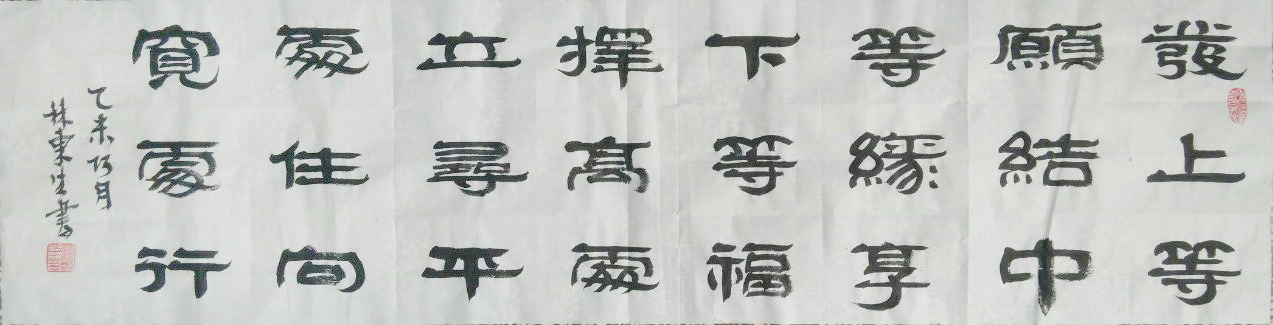 發上等
願結中
等緣享
下等福
擇高處
立尋平
處住向
寬處行
乙未巧月
林東生書